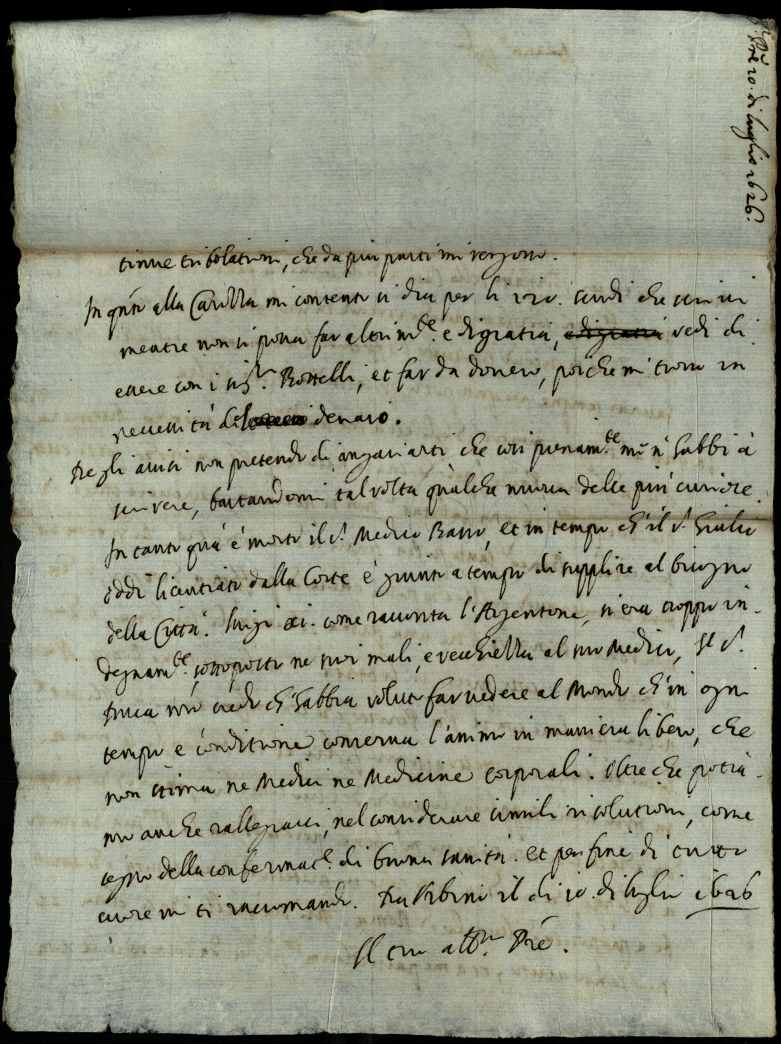 Pre 10. di luglio 1626.
tinue tribolationi, che da piu parti mi vengono.
In qnto alla Carozza mi contento si dia per li 120. scudi che scrivi
mentre non si possa far altrim.te e digratia, edigratia vedi di
essere con i sig.ri Rosselli, et far da dovero, poiche mi trovo in
necessità di denaro.
Degli avisi non pretendo di angariarti che così pienam.te me n' habbi à
scrivere, bastandomi talvolta qualche nuova delle più curiose.
In tanto quà è morto il s.r Medico Basso, et in tempo ch'il s.r Giulio
Oddi licentiato dalla Corte è giunto a tempo di supplire al bisogno
della Città. come racconta l'Argentone, si era troppo in-
degnam.te sottoposto ne suoi mali, e vecchiezza al suo Medico, Il s.r
Duca nro credo ch'habbia voluto far vedere al Mondo ch'in ogni
tempo e conditione conserva l'animo in maniera libero, che
non stima ne Medici ne Medicine corporali. Oltre che potia-
mo anche rallegrarci, nel considerare simili risolutioni, come
segno della confermat.e di buona sanità. Et per fine di tutto
cuore mi ti raccomando. Da Urbino il di 10. di luglio 1626
Il tuo Pre.